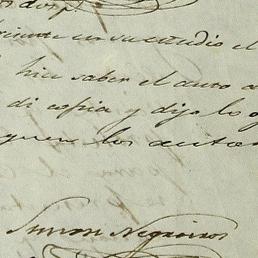 en su estudio el
hice saber el auto a
di copia y dijo lo
quen los autos
Simon Negreiros